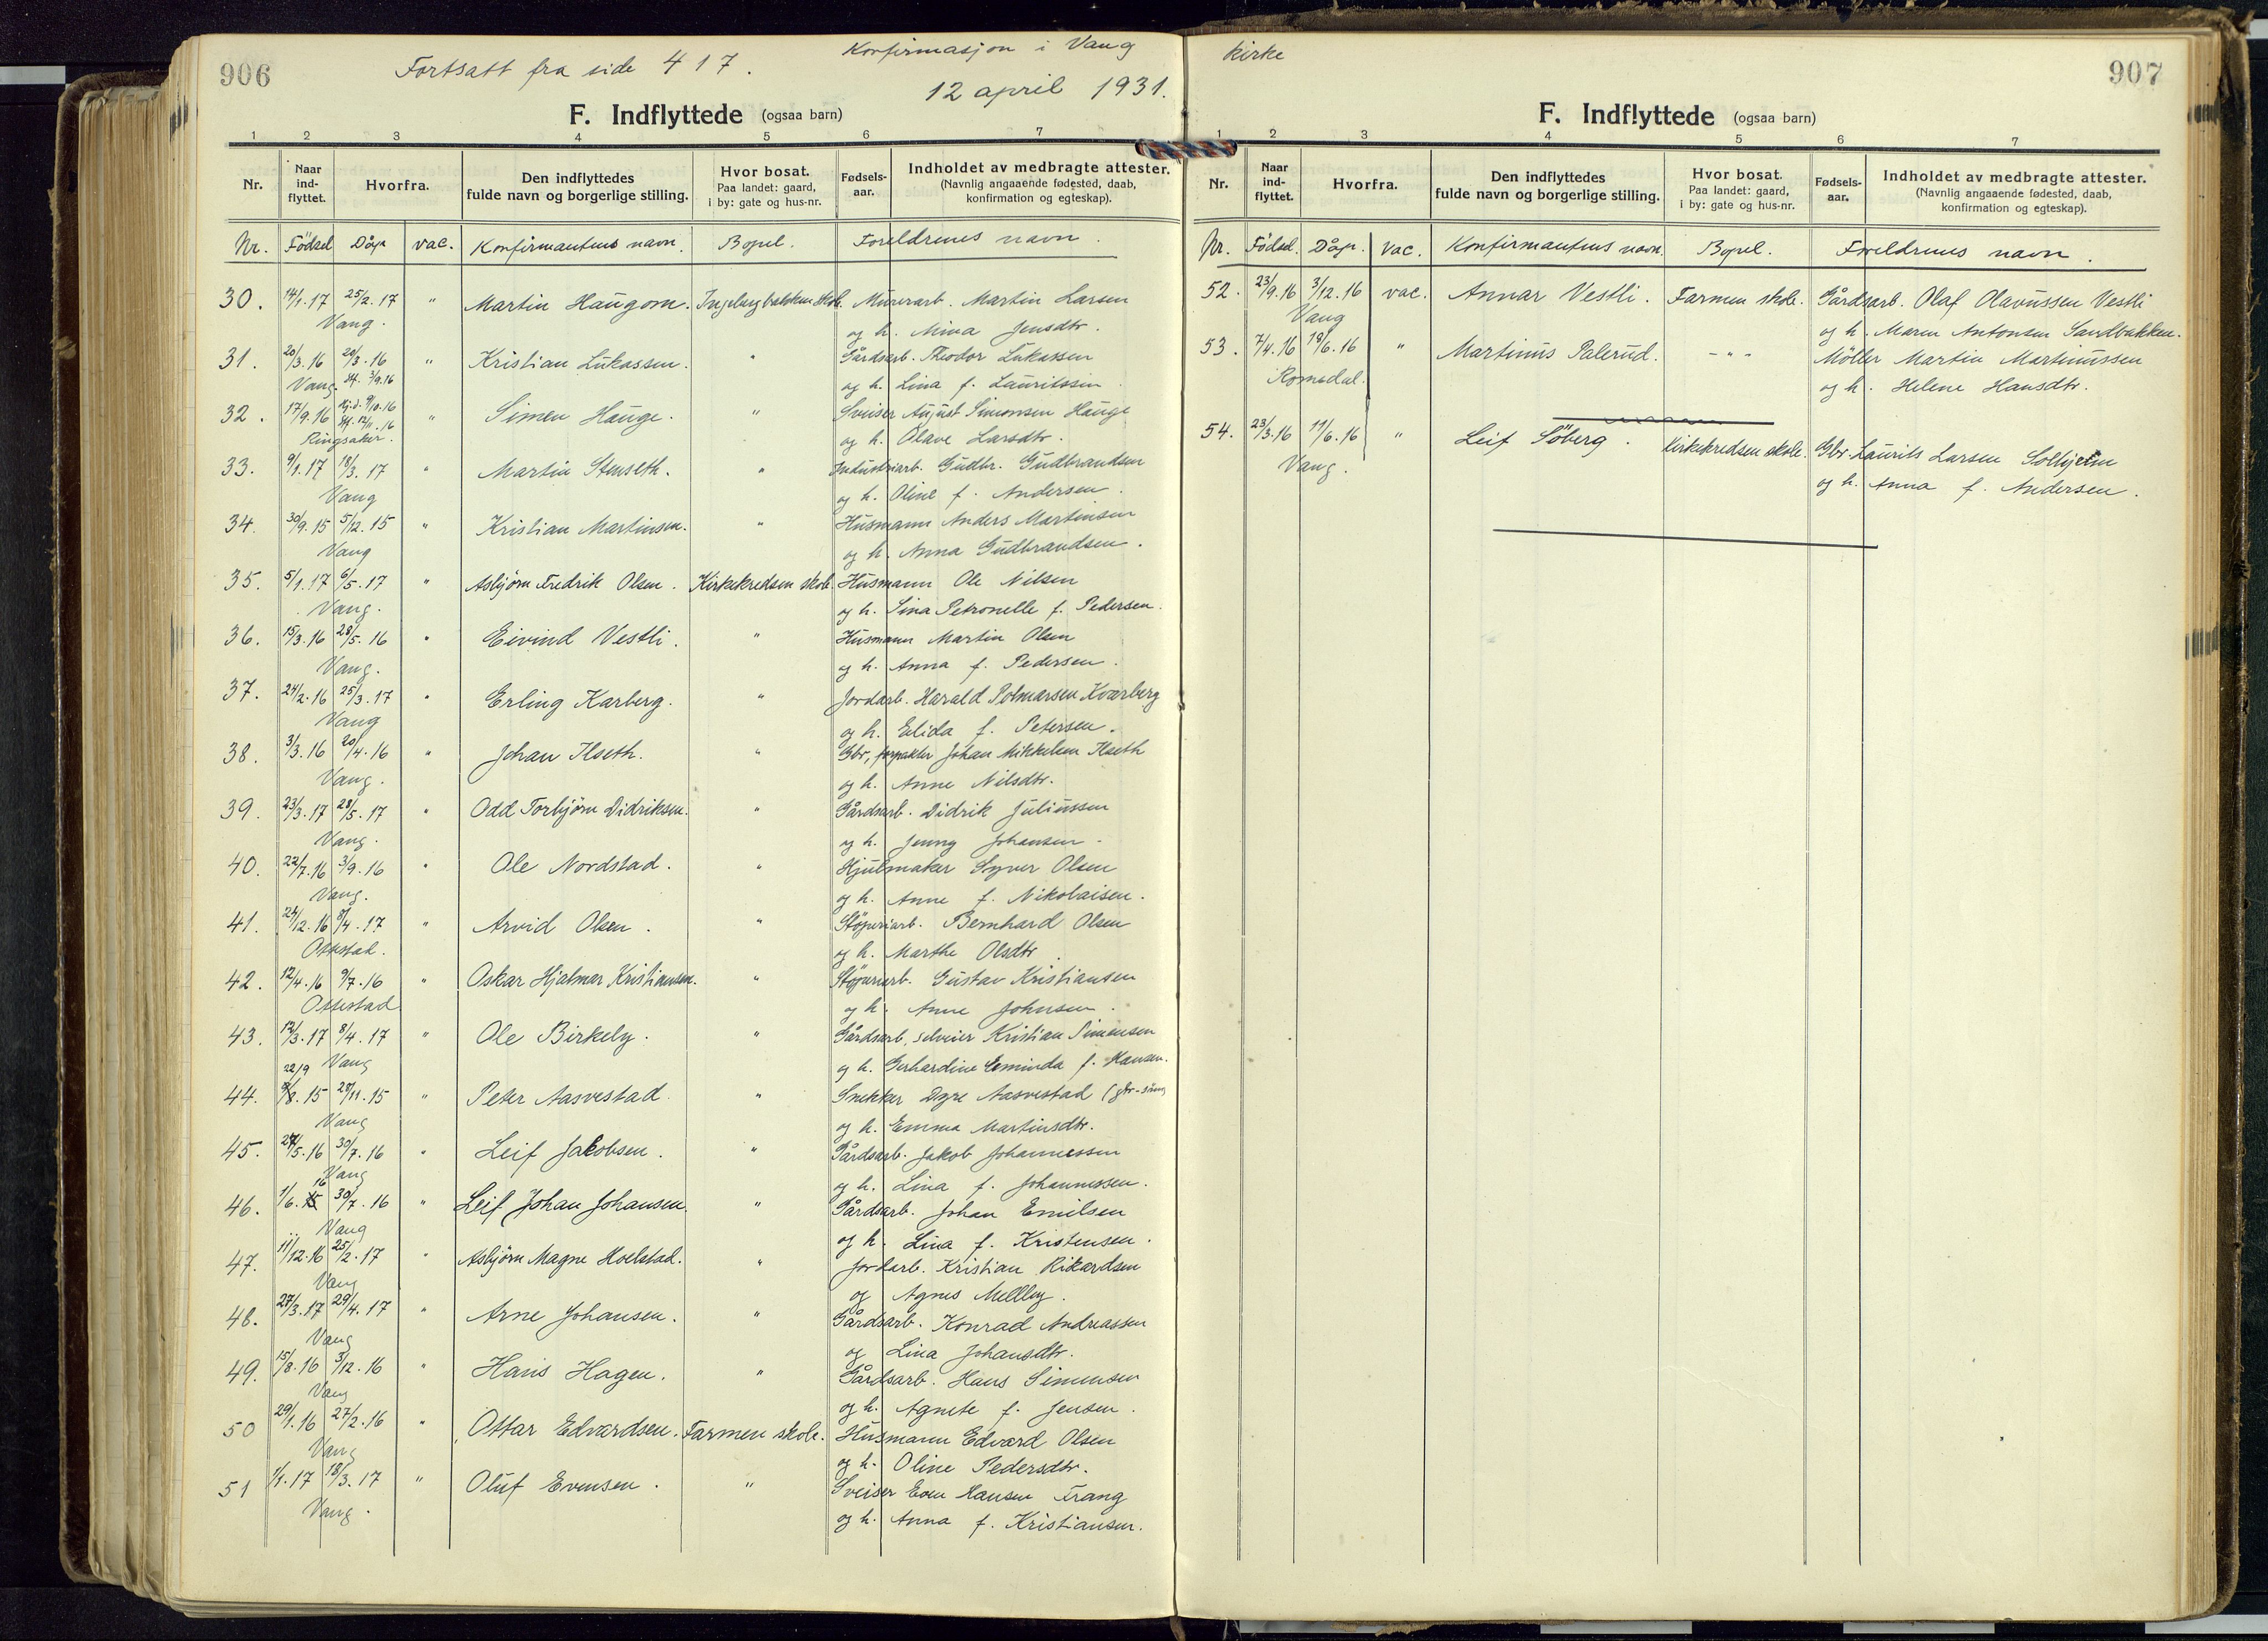 906
Fortsatt fra side 417.
Konfirmasjon i Vang
12 april 1931.
F. Indflyttede (ogsaa barn)
1 2 3 4 5 6 7
Nr. Naar ind-flyttet. Hvorfra. Den indflyttedes fulde navn og borgerlige stilling. Hvor bosat. Paa landet: gaard, i by: gate og hus-nr. Fødsels-aar. Indholdet av medbragte attester. (Navnlig angaaende fødested, daab, konfirmation og egteskap).
Nr. Födsel Dåp vac. Konfirmantens navn. Bopel. Foreldrenes navn.
30. 14/1.17 25/2.17 " Martin Haugom. Ingeberg bakken skole. Murerarb. Martin Larsen
Vang. og h. Mina Jensdtr.
31. 20/3.16 20/3.16 " Kristian Lukassen. " Gårdsarb. Theodor Lukassen
Vang. stf. 3/9.16 og h. Lina f. Lauritssen
32. 17/9.16 hj.d. 9/10.16 " Simen Hauge. " Sveiser August Simonsen Hauge
Ringsaker. stf. 12/11.16 og h. Olave Larsdtr.
33. 9/1.17 18/3.17 " Martin Stenseth. " Industriarb. Gudbr. Gudbrandsen
Vang og h. Oline f. Andersen.
34. 30/9.15 5/12.15 " Kristian Martinsen. " Husmann Anders Martinsen
Vang og h. Anna Gudbrandsen.
35. 5/1.17 6/5.17 " Asbjørn Fredrik Olsen. Kirkekredsen skole. Husmann Ole Nilsen
Vang. og h. Lina Petronelle f. Pedersen.
36. 15/3.16 28/5.16 " Eivind Vestli. " Husmann Martin Olsen
Vang. og h. Anna f. Pedersen.
37. 24/2.16 25/3.17 " Erling Karberg. " Jordarb. Harald Polmarsen Kvarberg
Vang og h. Elida f. Petersen.
38. 3/3.16 20/4.16 " Johan Ilseth. " Gbr, forpakter Johan Mikkelsen Ilseth
Vang. og h. Anne Nilsdtr.
39. 23/3.17 28/5.17 " Odd Torbjörn Didriksen. " Gårdsarb. Didrik Juliussen
Vang. og h. Jenny Johansen.
40. 22/7.16 3/9.16 " Ole Nordstad. " Hjulmaker Syver Olsen
Vang. og h. Anne f. Nikolaisen.
41. 24/12.16 8/4.17 " Arvid Olsen. " Støperiarb. Bernhard Olsen
Ottestad. og h. Marthe Olsdtr.
42. 12/4.16 9/7.16 " Oskar Hjalmar Kristiansen. " Støperiarb. Gustav Kristiansen
Ottestad og h. Anne Johnsen.
43. 12/3.17 8/4.17 " Ole Birkely. " Gårdsarb, selveier Kristian Simensen
Vang og h. Gerhardine Eminda f. Hansen.
22/9
44. 9/8.15 28/11.15 " Peter Aasvestad. " Snekker Dyre Aasvestad (gbr-sønn
Vang og h. Emma Martinsdtr.
45. 27/5.16 30/7.16 " Leif Jakobsen. " Gårdsarb. Jakob Johannessen
Vang og h. Lina f. Johannessen.
16
46. 1/6.15 30/7.16 " Leif Johan Johansen. " Gårdsarb. Johan Emilsen
Vang og h. Lina f. Kristensen.
47. 11/12.16 25/2.17 " Asbjörn Magne Hoelstad. " Jordarb. Kristian Rikardsen
Vang og Agnes Mellby.
48. 27/3.17 29/4.17 " Arne Johansen. " Gårdsarb. Konrad Andreassen
Vang og Lina Johansdtr.
49. 15/8.16 3/12.16 " Hans Hagen. " Gårdsarb. Hans Simensen
Vang og h. Agnete f. Jensen.
50 29/1.16 27/2.16 " Ottar Edvardsen. Farmen skole. Husmann Edvard Olsen
Vang og h. Oline Pedersdtr.
51 1/1.17 18/3.17 " Oluf Evensen. " Sveiser Even Hansen Frang
Vang. og h. Anna f. Kristiansen.
kirke
907
F. Indflyttede (ogsaa barn)
1 2 3 4 5 6 7
Nr. Naar ind-flyttet. Hvorfra. Den indflyttedes fulde navn og borgerlige stilling. Hvor bosat. Paa landet: gaard, i by: gate og hus-nr. Fødsels-aar. Indholdet av medbragte attester. (Navnlig angaaende fødested, daab, konfirmation og egteskap).
Nr. Födsel. Dåp. Vac. Konfirmantens navn. Bopel. Foreldrenes navn.
52. 23/9.16 3/12.16 vac. Annar Vestli. Farmen skole. Gårdsarb. Olaf Olavussen Vestli
Vang og h. Maren Antonsen Sandbakken.
53. 7/4.16 18/6.16 " Martinus Palerud. - " - Möller Martin Martinussen
Romedal. og h. Helene Hansdtr.
54. 23/3.16 11/6.16 " Leif Söberg. Kirkekredsen skole. Gbr. Laurits Larsen Solhjem
Vang. og h. Anna f. Andersen.